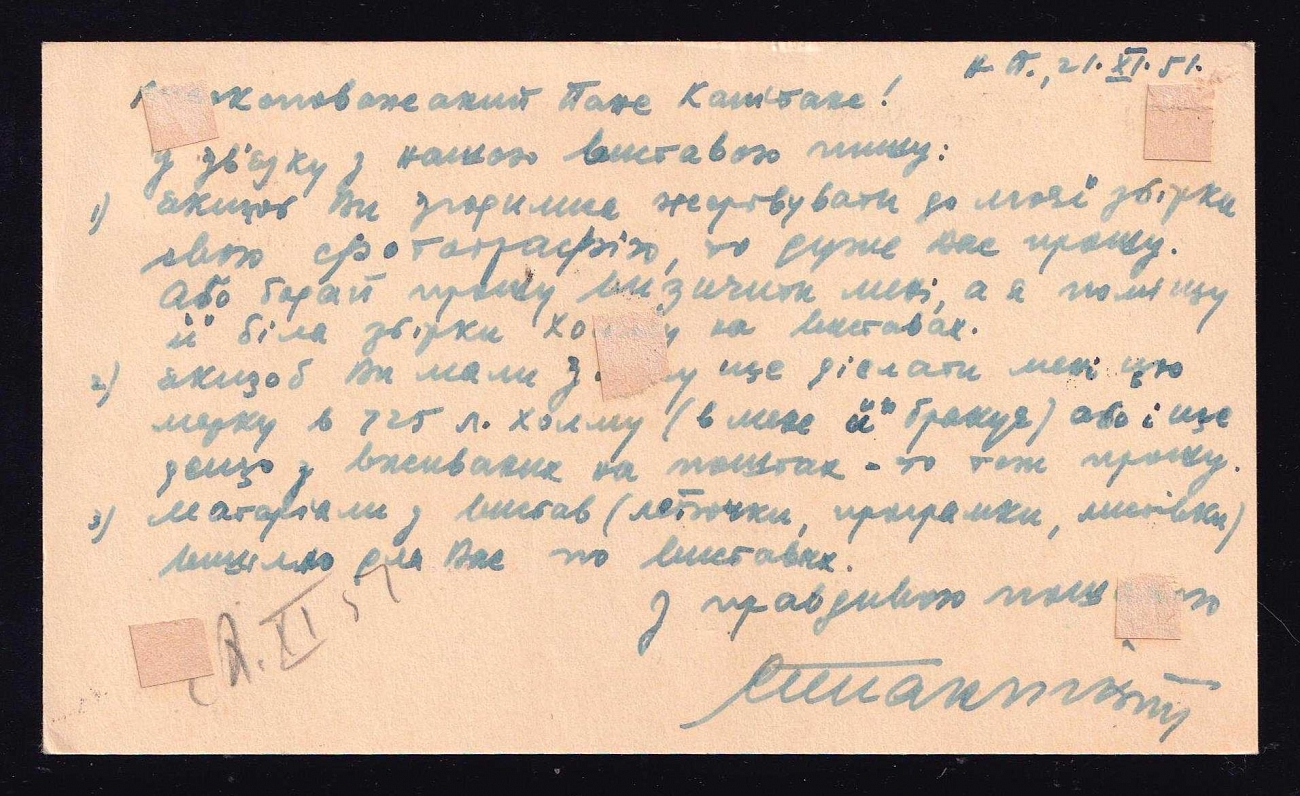 21.XI.51.
Пане Капітане!
У зв'язку з нашою виставою пишу:
1) якщоб Ви згодилися жертвувати до моєї збірки
свою фотографію, то дуже Вас прошу.
Або бодай прошу визичити мені, а я поміщу
її біля збірки на виставах.
2) якщоб Ви мали ще діслати мені цю
марку в 725 л. Холму (в мене її бракує) або і ще
дещо з на поштах - то теж прошу.
3) Матеріали з вистав (леточки, програмки, листівки)
вишлю для Вас по виставах.
З правдивою
А.XI 51